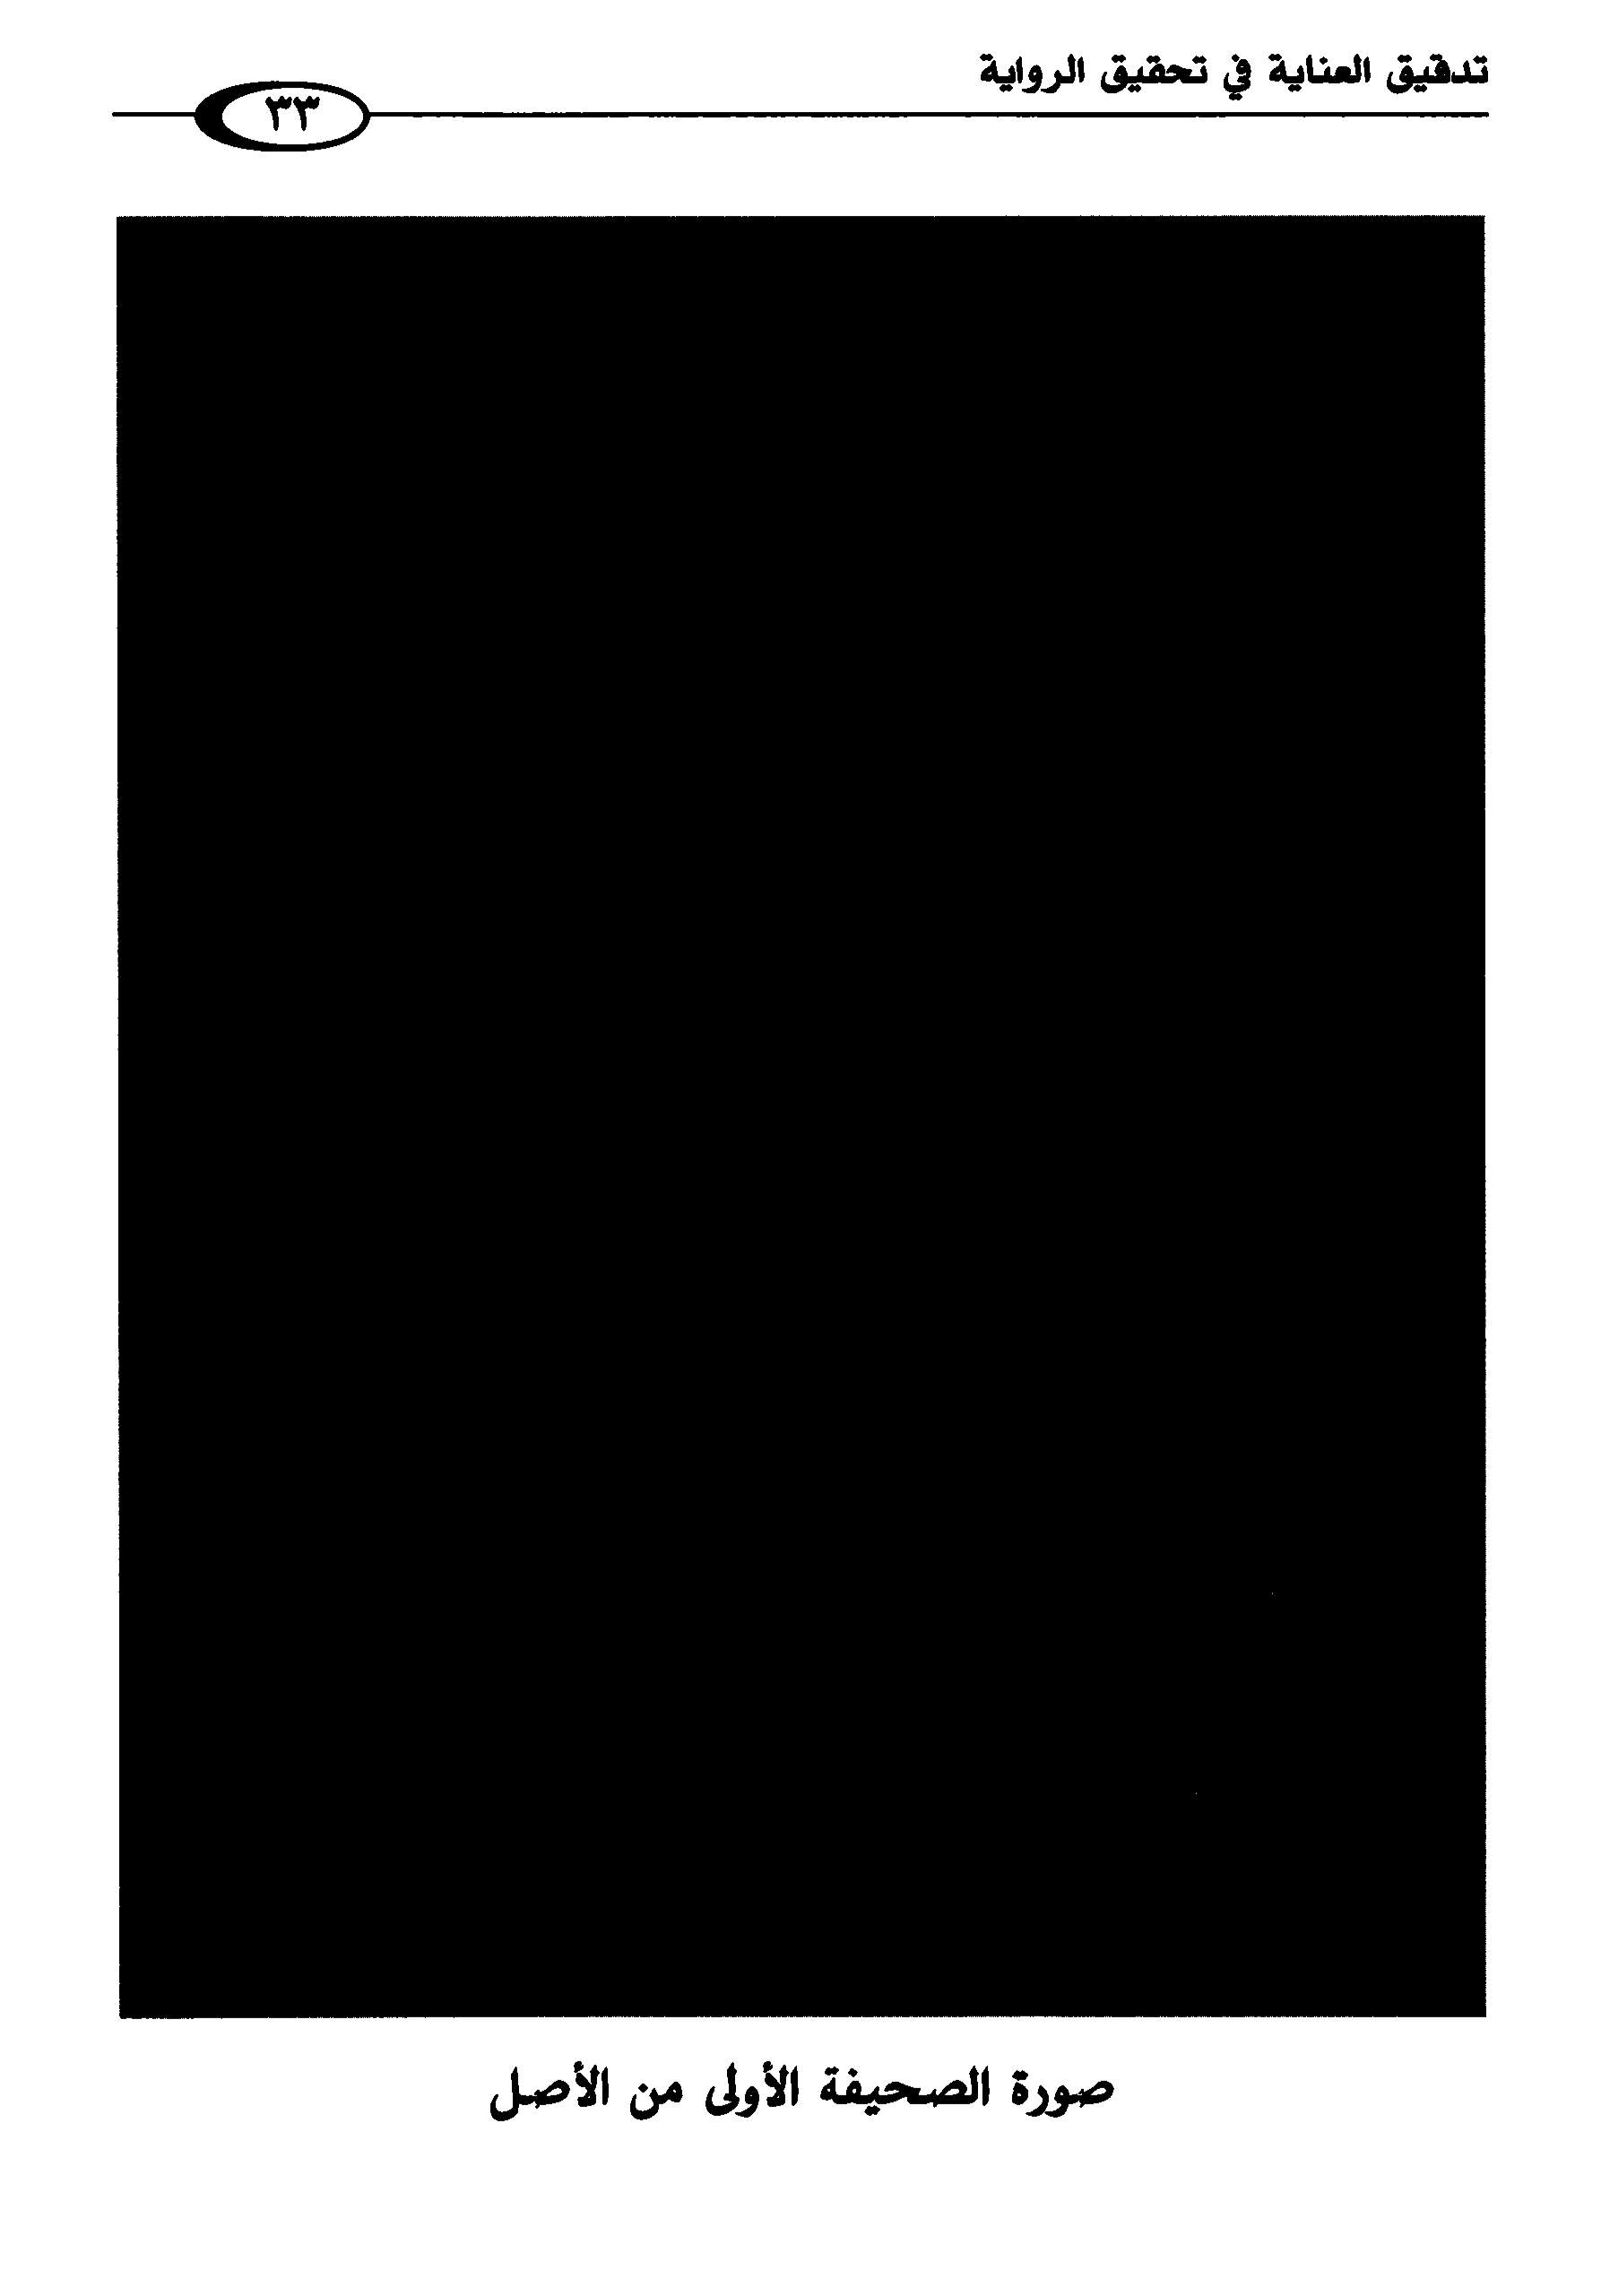 تدقيق العناية في تحقيق الرواية
٣٣
صورة الصحيفة الأولى من الأصل